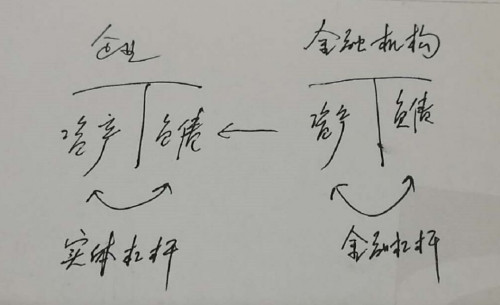 企业 金融机构
资产 负债 ← 资产 负债
实体杠杆 金融杠杆